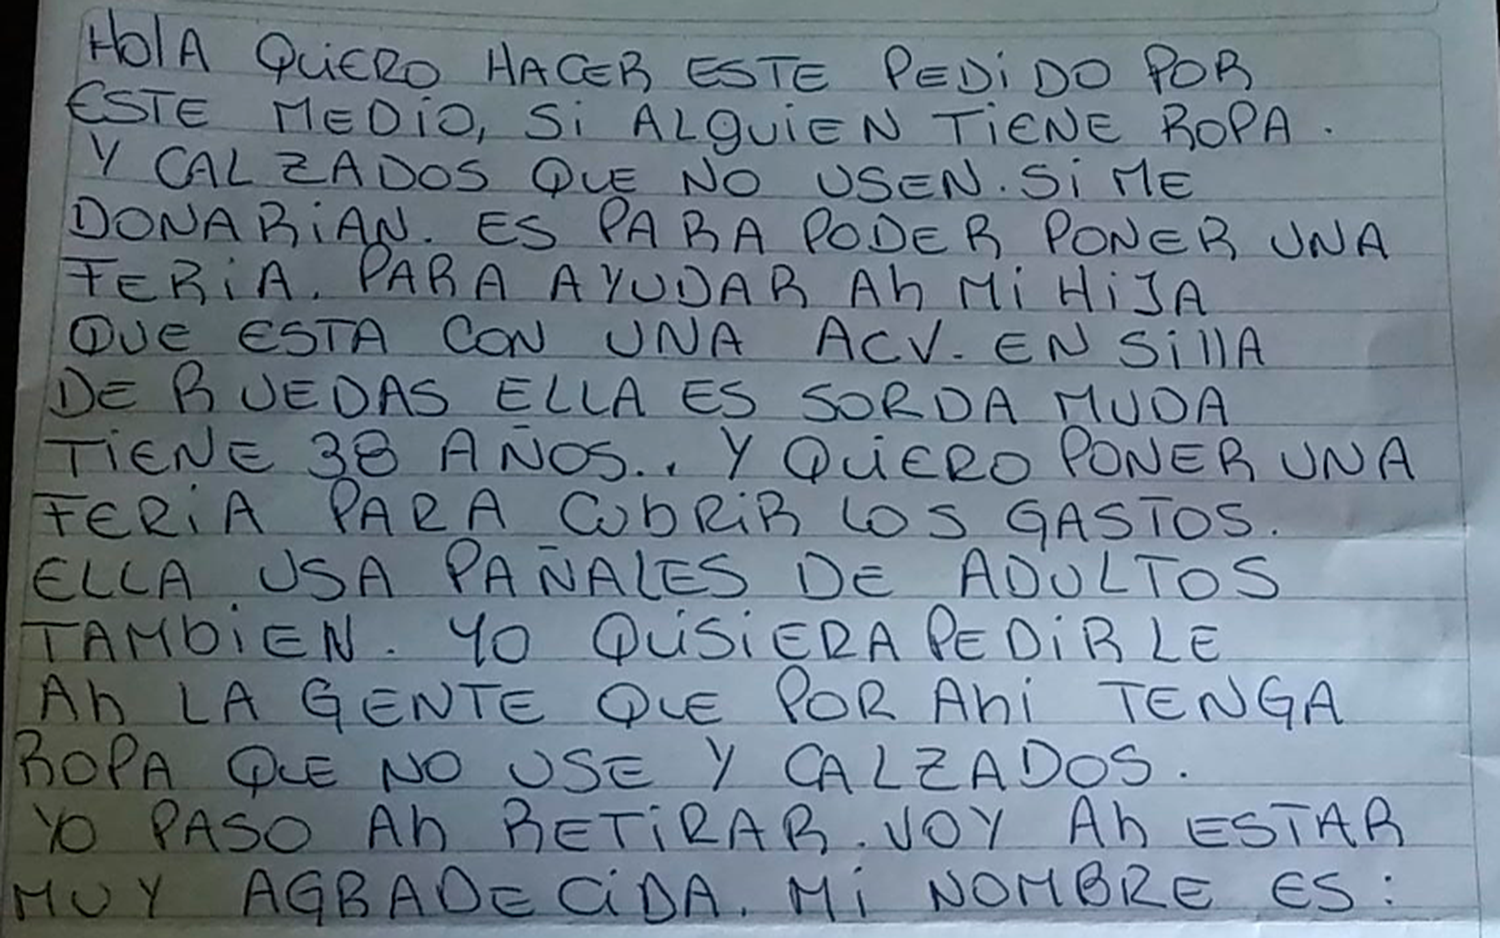 HOLA QUIERO HACER ESTE PEDIDO POR
ESTE MEDIO, SI ALGUIEN TIENE ROPA.
Y CALZADOS QUE NO USEN. SI ME
DONARIAN. ES PARA PODER PONER UNA
FERIA. PARA AYUDAR AH MI HIJA
QUE ESTA CON UNA ACV. EN SILLA
DE RUEDAS ELLA ES SORDA MUDA
TIENE 38 AÑOS.. Y QUIERO PONER UNA
FERIA PARA CUBRIR LOS GASTOS.
ELLA USA PAÑALES DE ADULTOS
TAMBIEN. YO QUISIERA PEDIRLE
AH LA GENTE QUE POR AHI TENGA
ROPA QUE NO USE Y CALZADOS.
YO PASO AH RETIRAR. VOY AH ESTAR
MUY AGRADECIDA. MI NOMBRE ES: